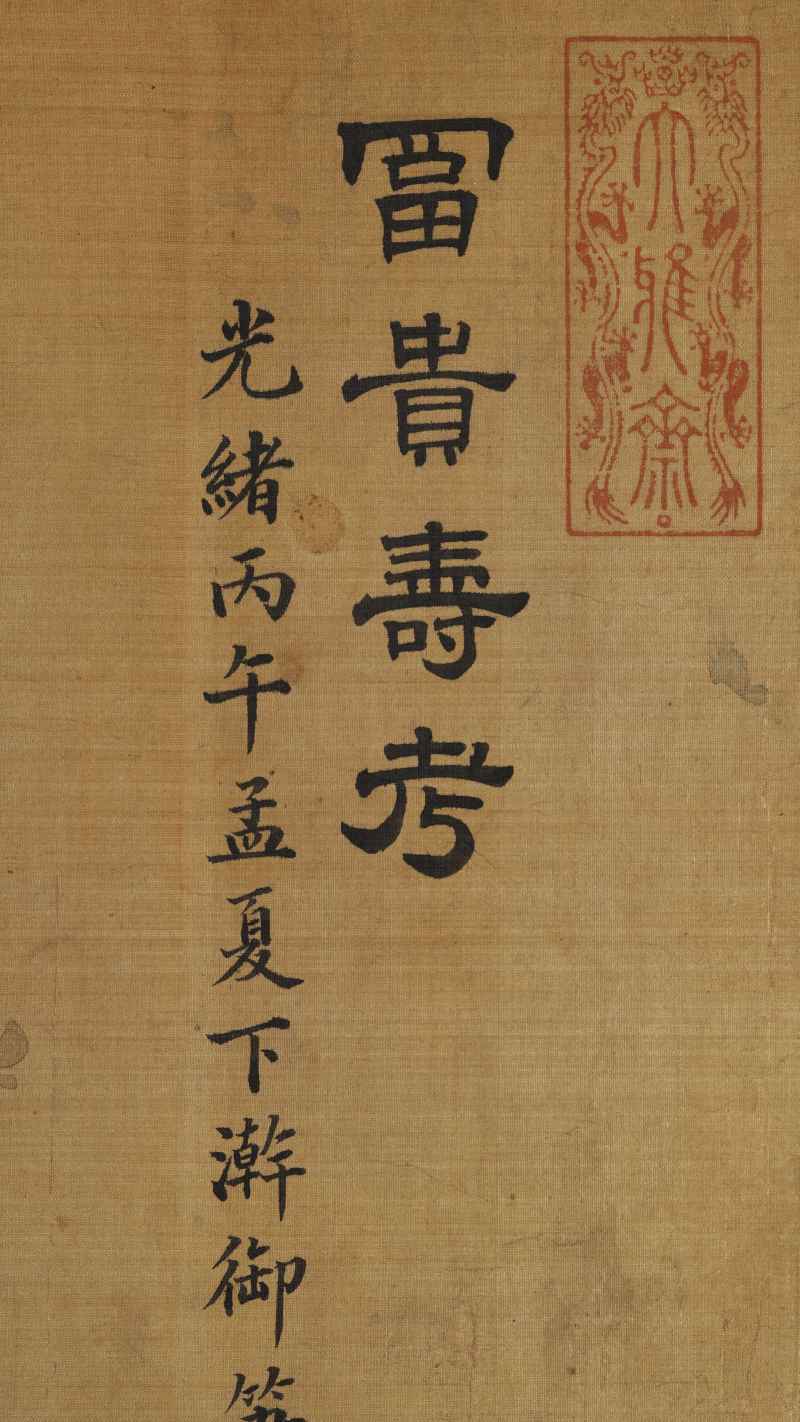 大雅齋
冨貴壽考
光緒丙午孟夏下澣御筆